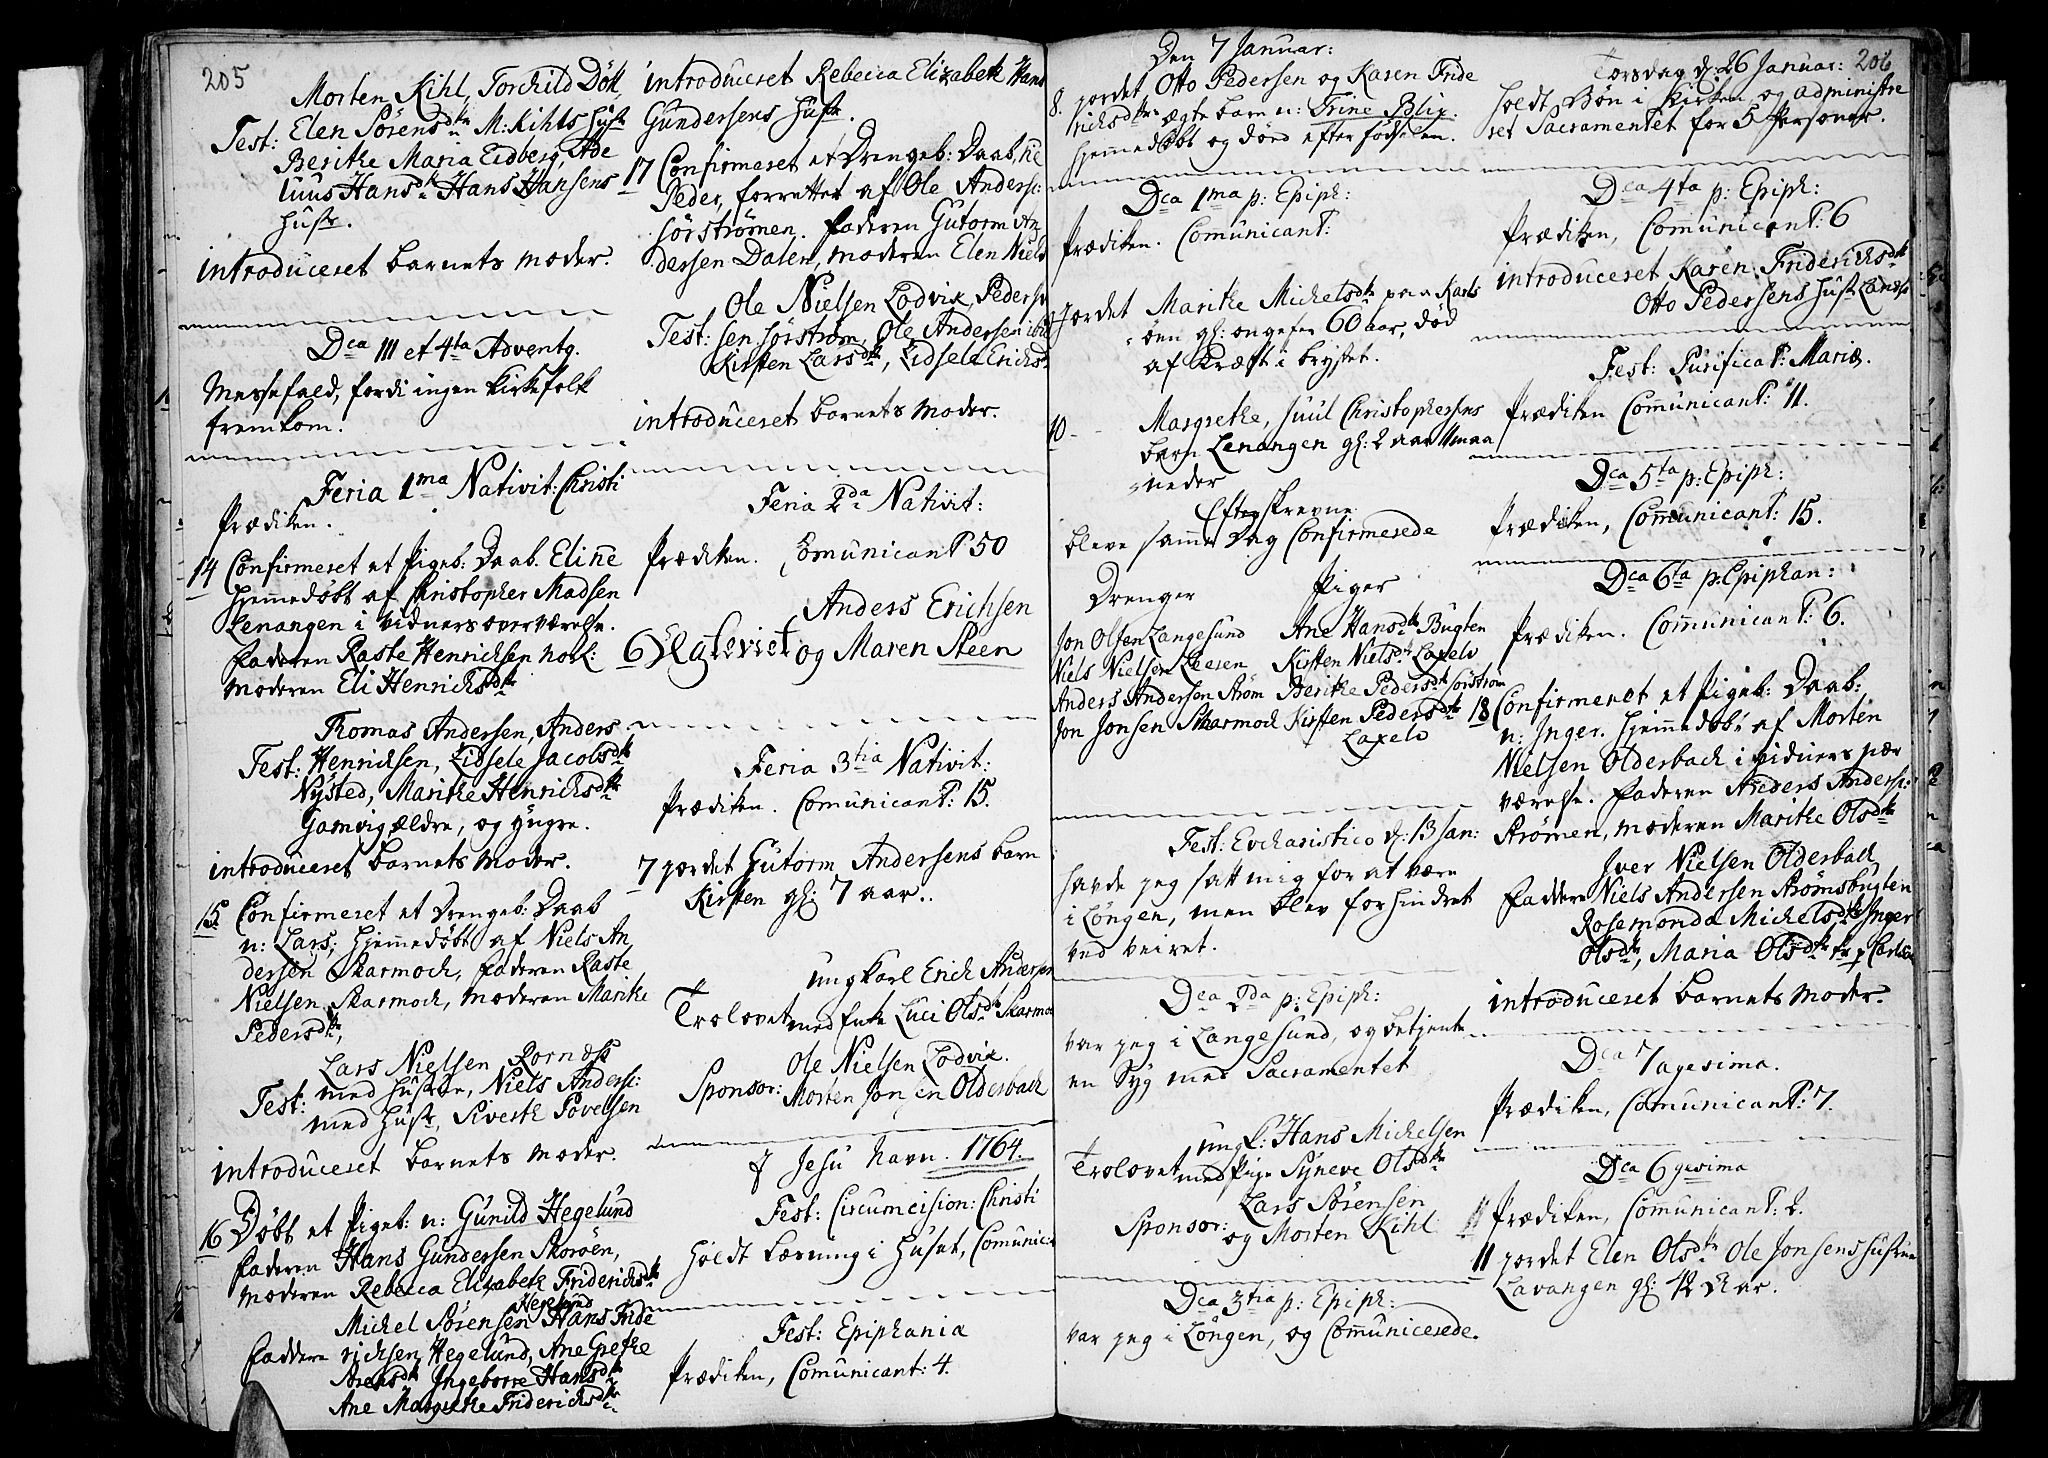 205
Morten Kihl, Torchild Döll,
Test: Elen Sörensdtr M: Kihls Hustr
Berithe Maria Eidberg, Ade
luus Hansdtr Hans Hansens
Hustr.
introduceret barnets moder.
Dca III et 4ta Adventq.
Messefald, fordi ingen Kirkefolk
fremkom.
Feria 1ma Nativit: Christi
Prædiken.
14 Confirmeret et Pigeb: Daab. Eline
hjemmedöbt af Christopher Madsen
Lenangen i vidners overværelse.
Faderen Raste Henrichsen
moderen Eli Henrichsdtr
Thomas Andersen, Anders
Test: Henrichsen, Lidsele Jacobsdtr
Nysted, Marithe Henrichsdtr
Gamvig ældre, og yngre.
introduceret barnets moder.
15 Confirmeret et Drengeb: Daab
n: Lars, hjemmedöbt af Niels An
dersen Skarmoch, Faderen Raste
Nielsen Skarmoch, moderen Marithe
Pedersdtr,
Lars Nielsen Rornæss
Test: med hustru, Niels Anderse:
med Hustr, Siverth Povelsen
introduceret barnets moder.
16 Döbt et Pigeb: n: Gunild Hegelund
Faderen Hans Gundersen Skoröen,
moderen Rebecca Elizabeth Friderichsdtr
Hegelund
Michel Sörensen Hans Fride
Faddere richsen Hegelund, Ane Grethe
Arensdtr Ingeborre Hansdtr
Ane Margrethe Friderichsdtr
introduceret Rebecca Elizabeth Hans
Gundersens Hustr.
17 Confirmeret et Drengeb: Daab, n:
Peder, forrettet af Ole Anderse:
Sörströmen. Faderen Gutorm An
dersen Dalen, moderen Elen Niels
Ole Nielsen Lodvix Peders
Test: sen Sörström, Ole Andersen ibid
Kirsten Larsdtr, Lidsele Erichs
introduceret barnets moder.
Feria 2da Nativit:
Prædiken. Comunicant: 50
Anders Erichsen
6 Ægteviet og Maren Steen
Feria 3tia Nativit:
Prædiken. Comunicant: 15.
7 jordet Gutorm Andersens barn
Kirsten gl: 7 aar.
ungkarl Erich Andersen
Trolovet med Enke Luci Olsdtr Skarmo
Ole Nielsen Lodvix.
Sponsor: Morten Jonsen Olderbach
J Jesu Navn. 1764.
Fest: Circumcision: Christi
holdt Læsning i Huset, Comunic
Fest: Epiphania
Prædiken, Comunicant: 4.
Den 7 Januar:
8. jordet Otto Pedersen og Karen Fride
richsdtrs ægte barn n: Trine Blix.
hjemmedöbt og död efter födselen.
Dca 1ma p: Epiph:
Prædiken. Comunicant:
jordet Marithe Michelsdtr paa Karls
öen gl: ongefer 60 aar, död
af Kræft i brystet.
10 Margrethe, Juul Christophersens
barn Lenangen gl: 2 aar 11 maa
neder
Efterskrevne
bleve samme Dag Confirmerede
Drenger Piger
Jon Olsen Langesund Ane Hansdtr Bugten
Niels Nielsen Leesen Kirsten Nielsdtr Laxelv
Anders Andersen Ström Berithe Pedersdtr Sörström
Jon Jonsen Skarmoch Kirsten Pedersdtr
Laxelv
Fest: Evcharistico d: 13 Jan:
havde jeg satt mig for at være
i Löngen, men blev forhindret
ved veiret.
Dca 2da p: Epiph:
var jeg i Langesund, og betjente
en Syg med Sacramentet
ungk: Hans Michelsen
Trolovet med Pige Syneve Olsdtr
Lars Sörensen
Sponsor: og Morten Kihl
Dca 3tia p: Epiph:
var jeg i Löngen, og Comunicerede.
Torsdag d: 26 Januar: 206
holdt Bön i Kirken og administre
ret Sacramentet for 5 Personer.
Dca 4ta p: Epiph:
Prædiken, Comunicant: 6
introduceret Karen Friderichsdtr
Otto Pedersens Hustr
Fest: Purificat: Mariæ.
Prædiken Comunicant: 11.
Dca 5ta p: Epiph:
Prædiken, Comunicant: 15.
Dca 6ta p: Epiphan:
Prædiken. Comunicant: 6.
18 Confirmeret et Pigeb: Daab:
n: Inger. hjemmedöbt af Morten
Nielsen Olderbach i vidners nær
værelse. Faderen Anders Anderse:
Strömen, moderen Marithe Olsdtr
Iver Nielsen Olderbach
Faddere Niels Andersen Strömsbugten
Rosemonda Michelsdtr Inger
Olsdtr, Maria Olsdtr
introduceret barnets moder.
Dca 7agesima.
Prædiken, Comunicant: 7.
Dca 6gesima
Prædiken, Comunicant: 2.
11 jordet Elen Olsdtr Ole Jonsens hustrue
Lavangen gl: 42 Aar.